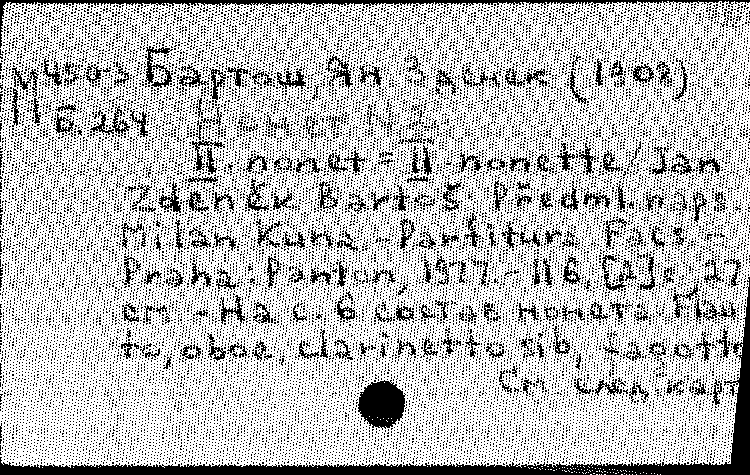 М 450-3 Бартош, Ян Зденек (1908)
Б. 264 Нонет N 2.
II. nonet = II. nonette / Jan
Zdeněk Bartoš. Předml. naps.
Milan Kuna. - Partitura. Facs. -
Praha: Panton, 1977. - 116, [2] s.; 27
cm. - На с. 6 состав нонета: Flau-
to, oboe, clarinetto sib, fagotto
См. след. карт